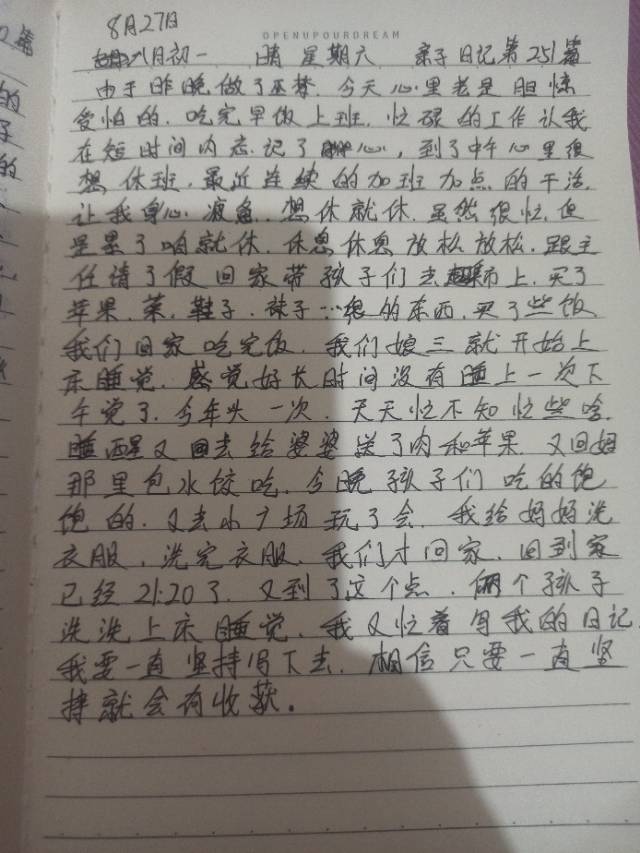 8月27日
OPENUPOURDREAM
八月初一 晴 星期六 亲子日记第251篇
由于昨晚做了巫梦. 今天心里老是胆惊
受怕的. 吃完早饭上班. 忙碌的工作认我
在短时间内忘记了心, 到了中午心里很
想休班. 最近连续的加班加点的干活.
让我身心疲惫. 想休就休. 虽然很忙. 但
是累了咱就休. 休息休息放松放松. 跟主
任请了假回家带孩子们去超市上. 买了
苹果. 菜. 鞋子. 袜子…很的东西. 买了些饭
我们回家吃完饭. 我们娘三就开始上
床睡觉. 感觉好长时间没有睡上一次下
午觉了. 今年头一次. 天天忙不知忙些啥.
睡醒又回去给婆婆送了肉和苹果. 又回妈
那里包水饺吃. 今晚孩子们吃的饱
饱的. 又去小广场玩了会. 我给妈妈洗
衣服. 洗完衣服. 我们才回家. 回到家
已经21:20了. 又到了这个点. 俩个孩子
洗洗上床睡觉. 我又忙着写我的日记.
我要一直坚持写下去. 相信只要一直坚
持就会有收获.